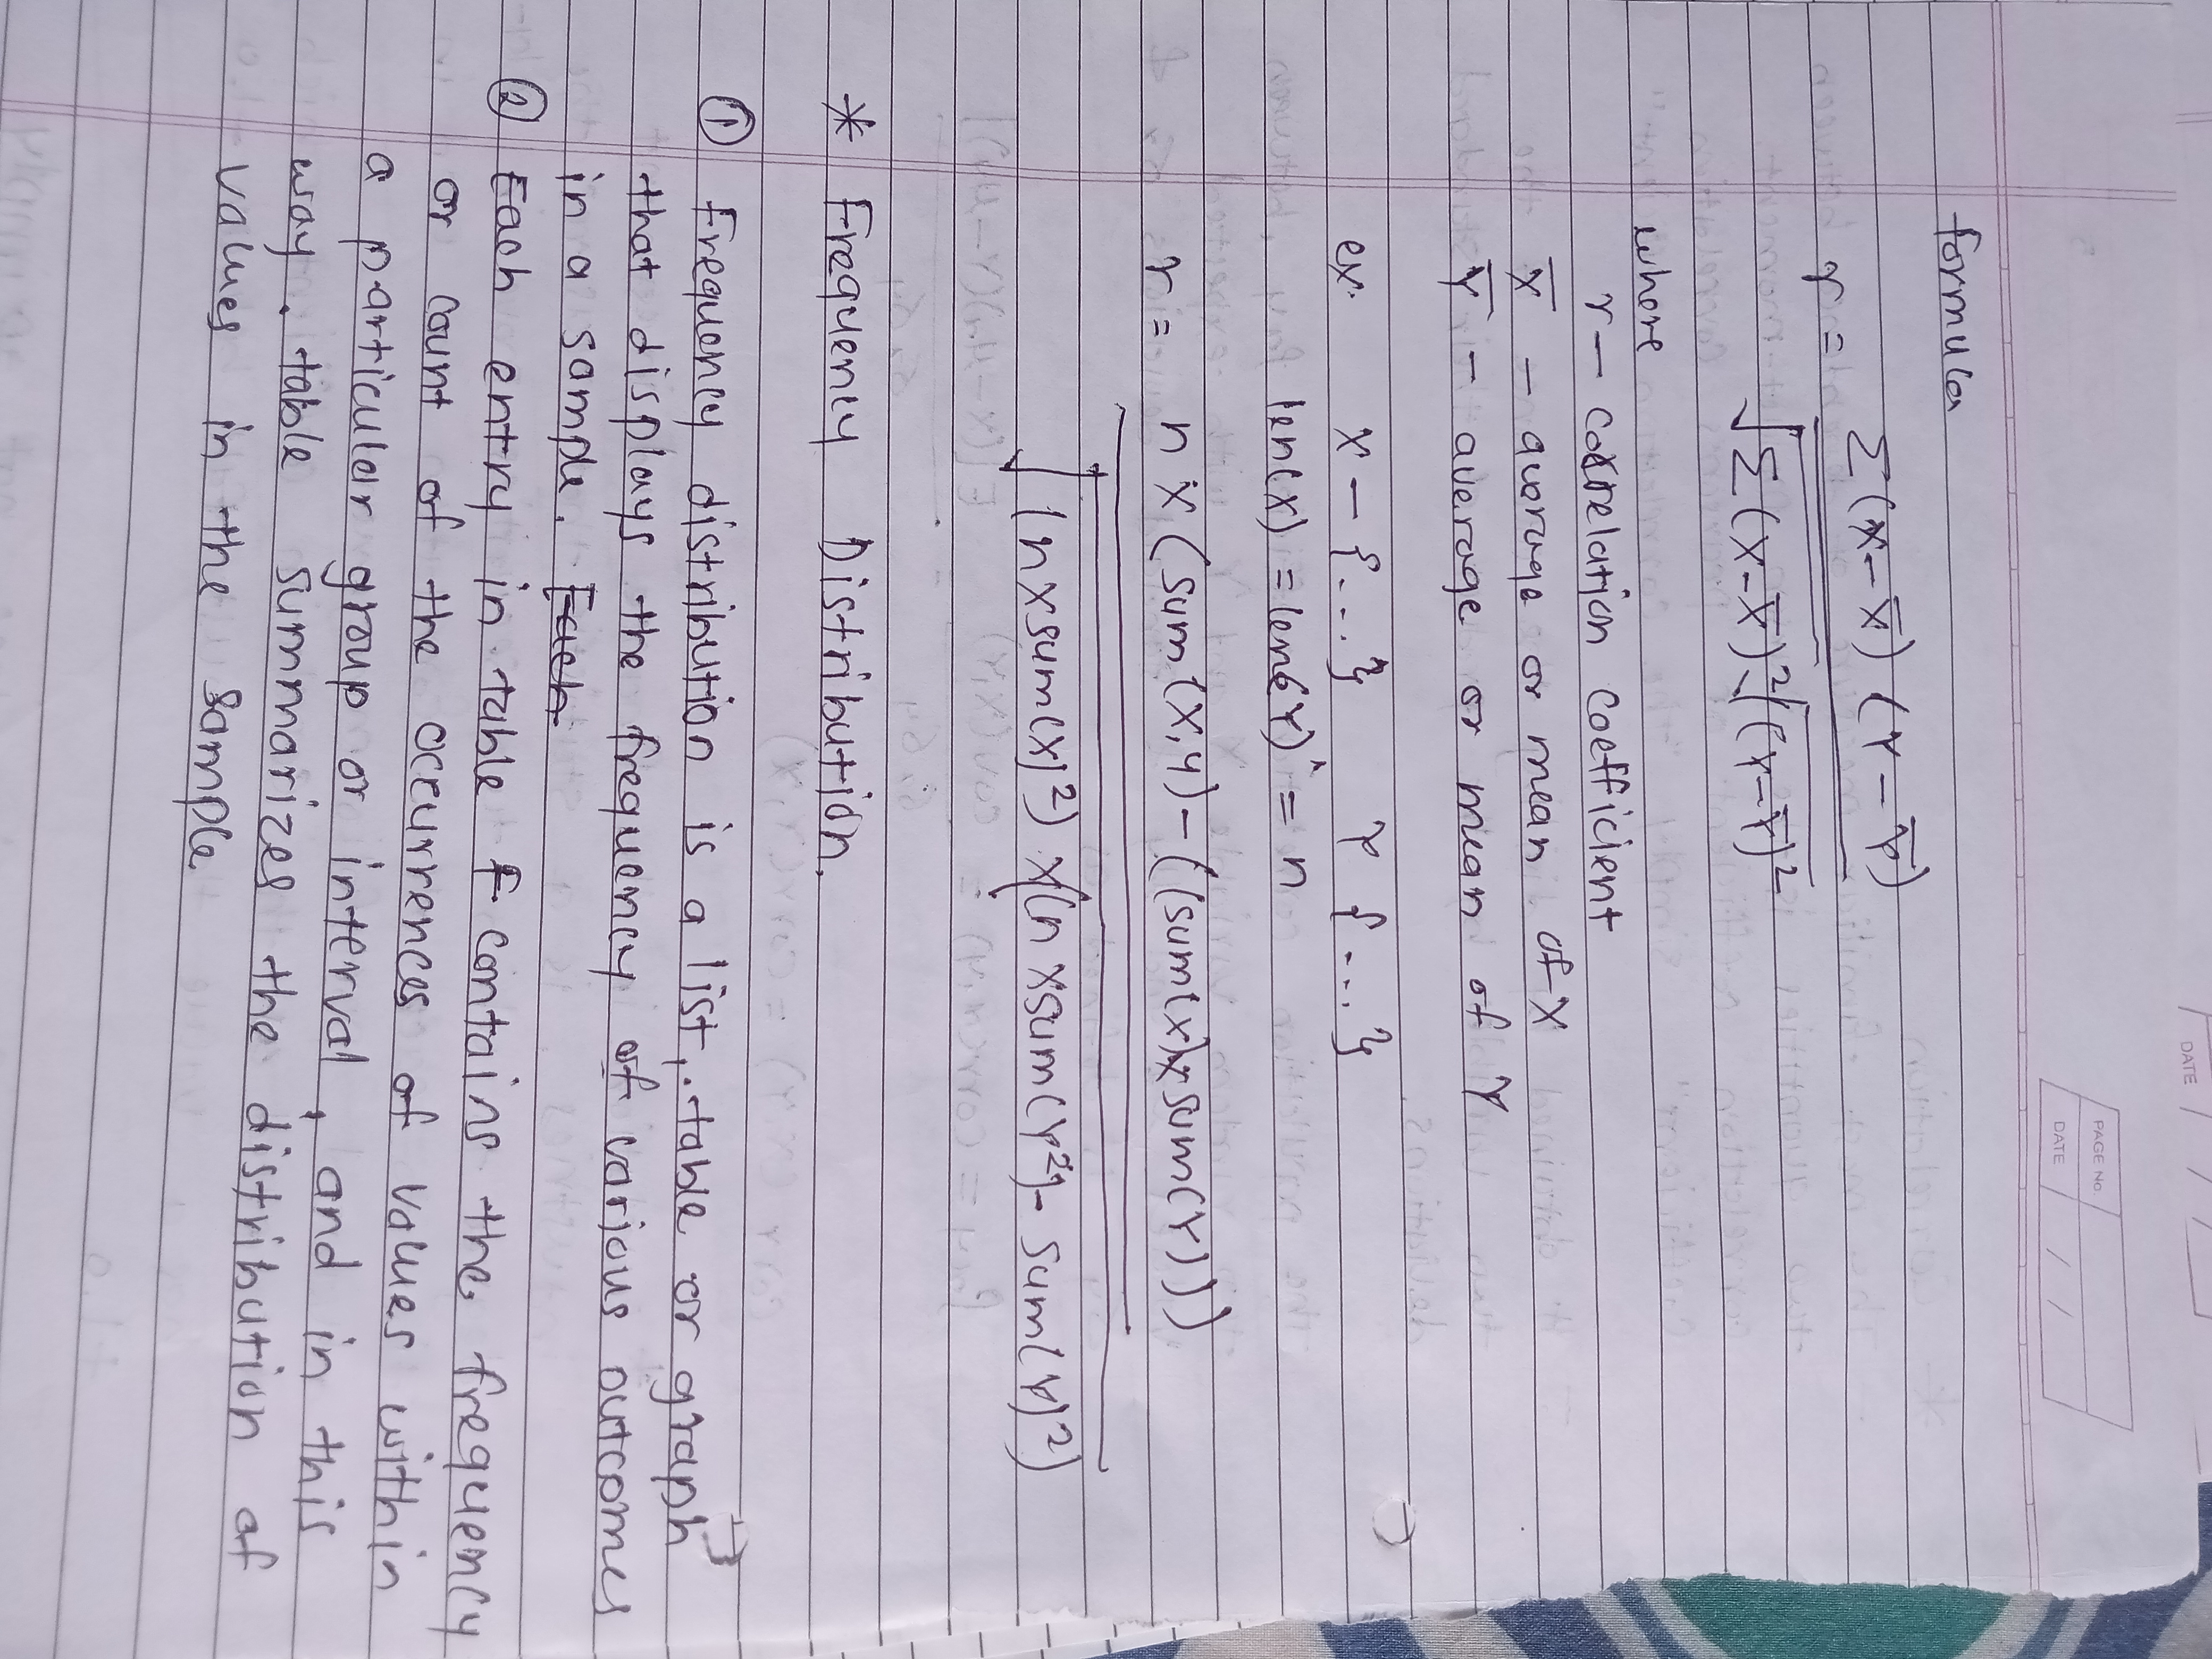 DATE / / /
PAGE No.
DATE / /
formula
r = Σ(X-X̄) (Y-Ȳ)
√Σ(X-X̄)² √(Y-Ȳ)²
where
r — correlation coefficient
X̄ — average or mean of X
Ȳ — average or mean of Y
ex. X — {...} Y {...}
len(X) = len(Y) = n
r = n × (sum(X,y) - ((sum(X)×sum(Y)))
√(n×sum(X)²) ×(n ×sum(Y²)- sum(Y)²)
* Frequency Distribution.
① Frequency distribution is a list, table or graph
that displays the frequency of various outcomes
in a sample. Each
② Each entry in table F contains the frequency
or count of the occurrences of values within
a particular group or interval, and in this
way. table summarizes the distribution of
values in the sample